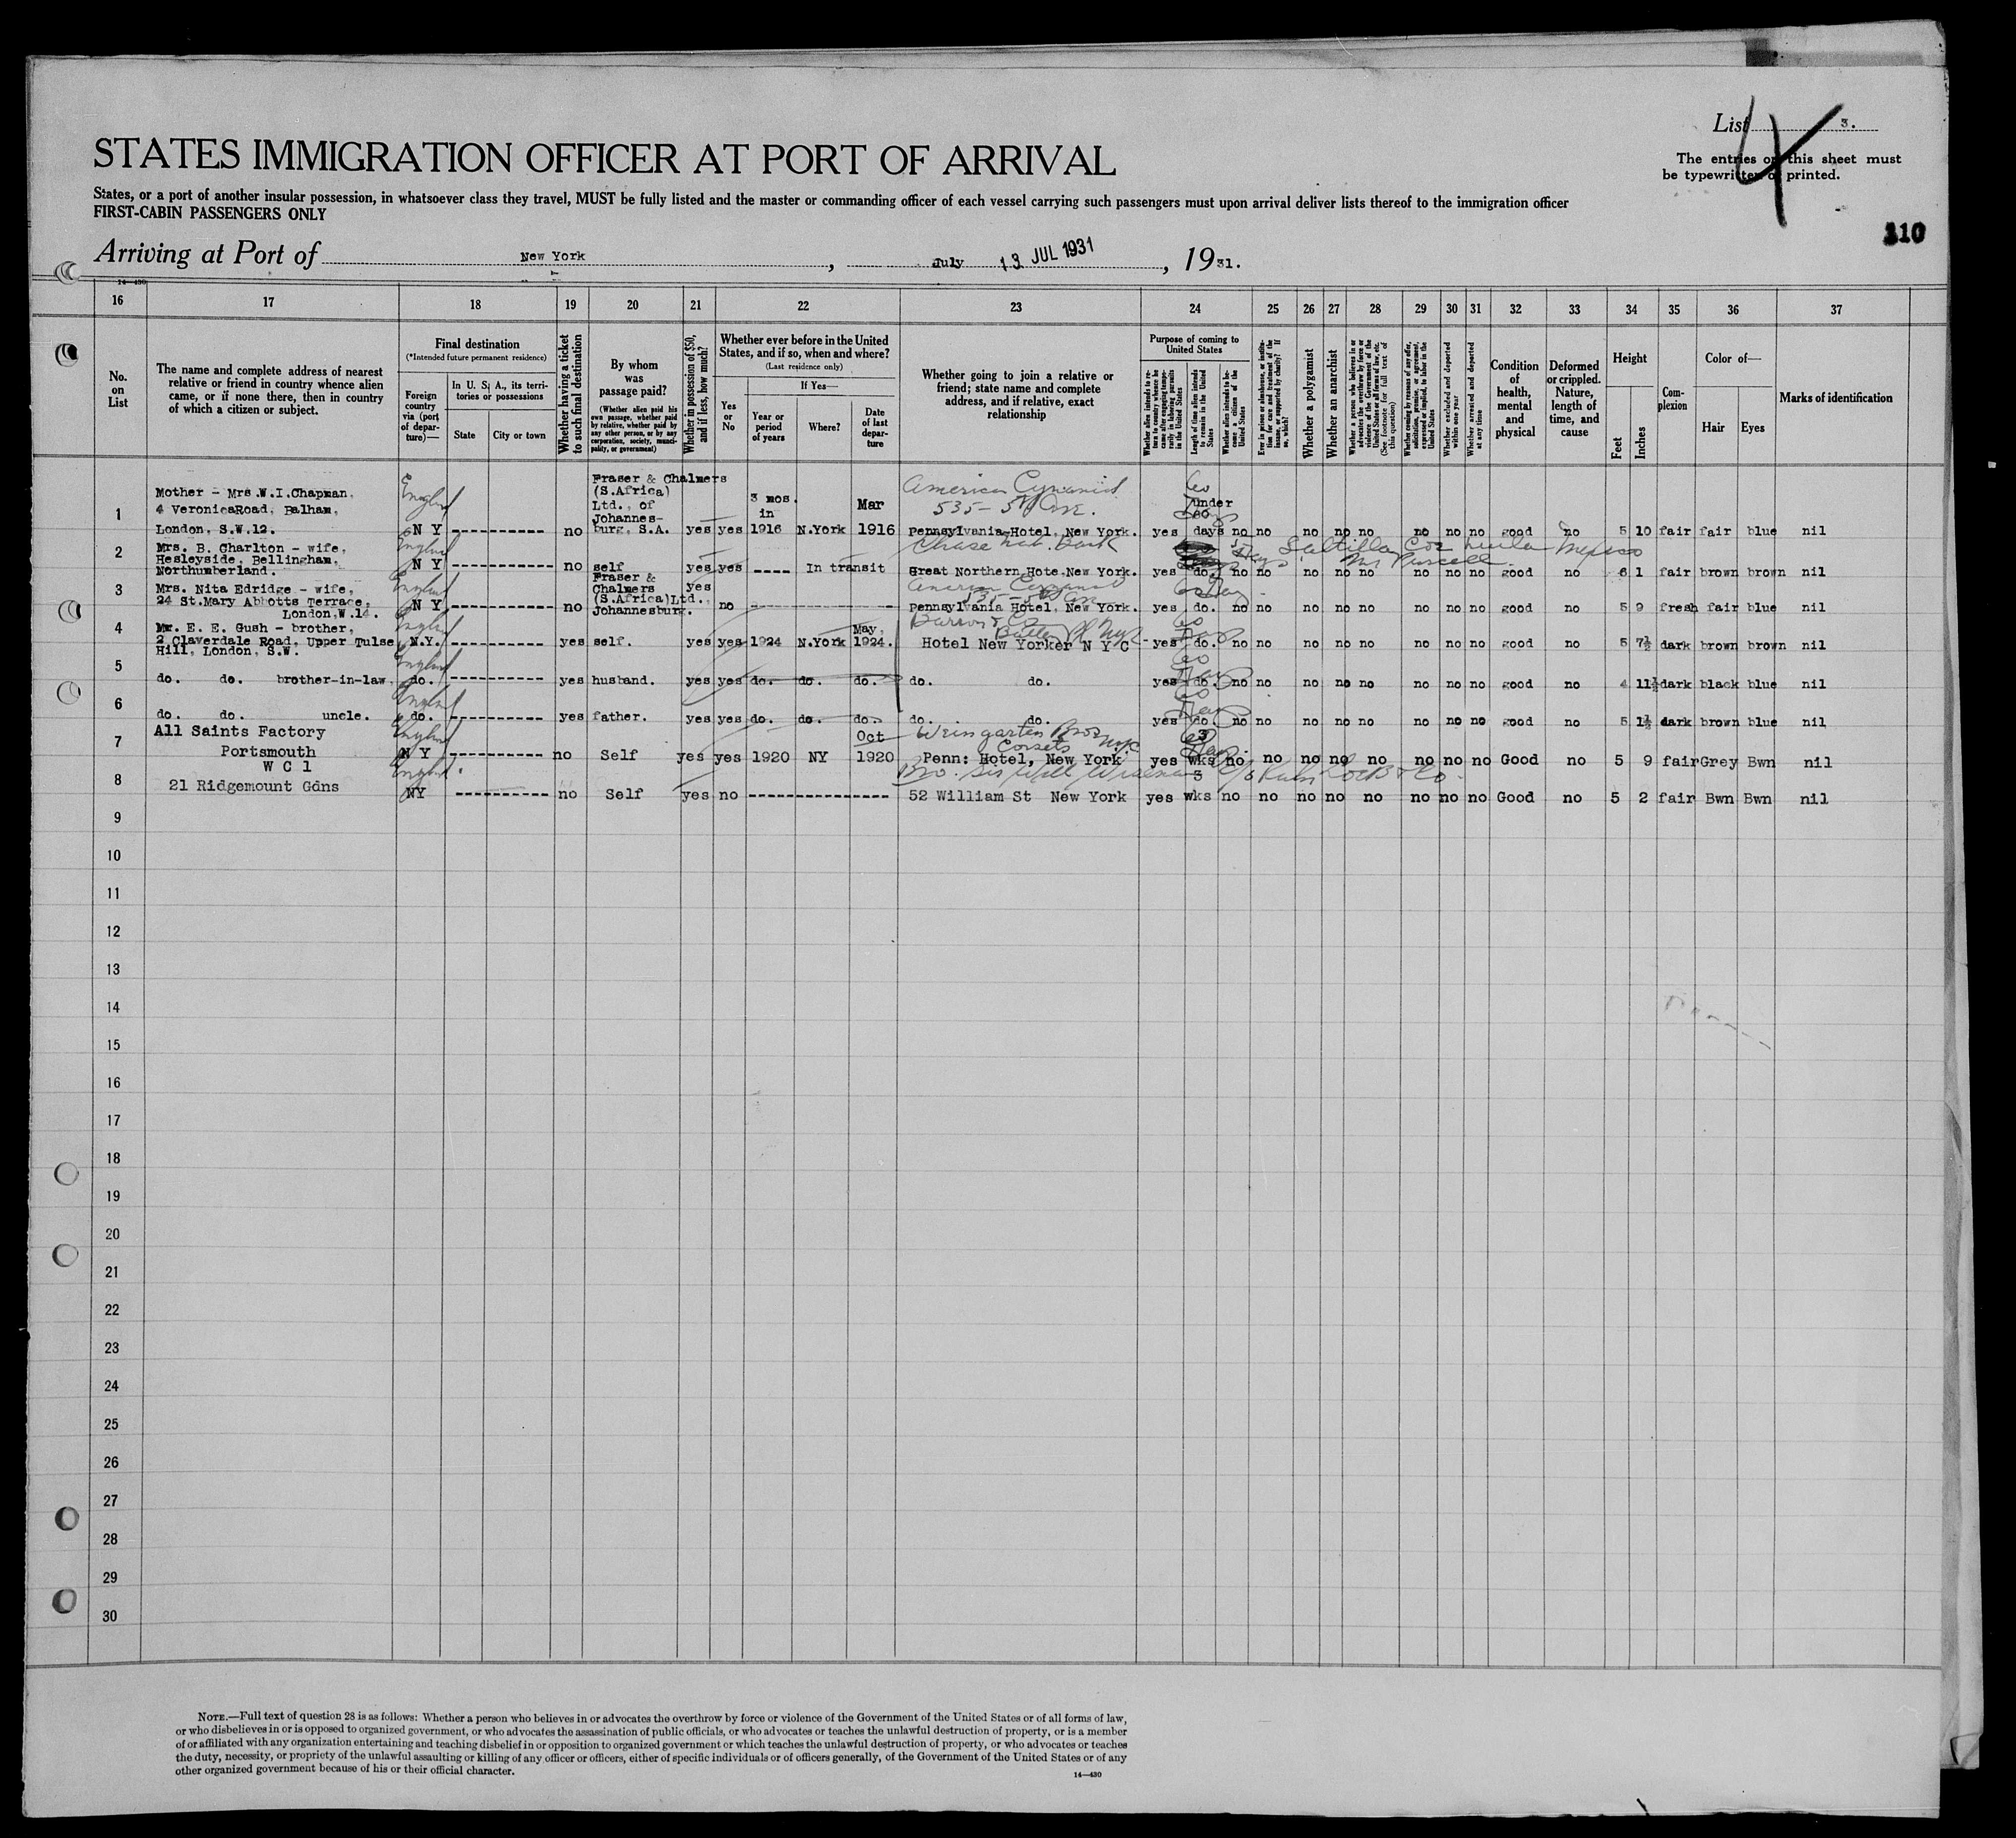 List 3.
4
The entries on this sheet must
be typewritten or printed.
STATES IMMIGRATION OFFICER AT PORT OF ARRIVAL
States, or a port of another insular possession, in whatsoever class they travel, MUST be fully listed and the master or commanding officer of each vessel carrying such passengers must upon arrival deliver lists thereof to the immigration officer
FIRST-CABIN PASSENGERS ONLY
110
Arriving at Port of New York, July 13 JUL 1931, 1931.
14—430
16 17 18 19 20 21 22 23 24 25 26 27 28 29 30 31 32 33 34 35 36 37
No. on List
The name and complete address of nearest relative or friend in country whence alien came, or if none there, then in country of which a citizen or subject.
Final destination
(*Intended future permanent residence)
Foreign country via (port of departure)—
In U. S. A., its territories or possessions
State
City or town
Whether having a ticket to such final destination
By whom was passage paid?
(Whether alien paid his own passage, whether paid by relative, whether paid by any other person, or by any corporation, society, municipality, or government)
Whether in possession of $50, and if less, how much?
Whether ever before in the United States, and if so, when and where?
(Last residence only)
Yes or No
If Yes—
Year or period of years
Where?
Date of last departure
Whether going to join a relative or friend; state name and complete address, and if relative, exact relationship
Purpose of coming to United States
Whether alien intends to return to country whence he came after engaging temporarily in laboring pursuits in the United States
Length of time alien intends to remain in the United States
Whether alien intends to become a citizen of the United States
Ever in prison or almshouse, or institution for care and treatment of the insane, or supported by charity? If so, which?
Whether a polygamist
Whether an anarchist
Whether a person who believes in or advocates the overthrow by force or violence of the Government of the United States or all forms of law, etc. (See footnote for full text of this question)
Whether coming by reason of any offer, solicitation, promise, or agreement, expressed or implied, to labor in the United States
Whether excluded and deported within one year
Whether arrested and deported at any time
Condition of health, mental and physical
Deformed or crippled. Nature, length of time, and cause
Height
Feet
Inches
Complexion
Color of—
Hair
Eyes
Marks of identification
Mother - Mrs.W.I.Chapman, England Fraser & Chalmers American Cyanamid 60
1 4 VeronicaRoad, Balham, (S.Africa) Ltd., of Johannes- 3 mos. in Mar 535 - 5th Ave. under 60 Days
London, S.W.12. N Y no burg, S.A. yes yes 1916 N.York 1916 Pennsylvania Hotel, New York. yes days no no no no no no no no good no 5 10 fair fair blue nil
2 Mrs. B. Charlton - wife, England Chase Nat. Bank Days Saltillo Mexico
Hesleyside, Bellingham, Mr Purcell
Northumberland. N Y no self yes yes ---- In transit Great Northern Hote.New York. yes do. no no no no no no no no good no 6 1 fair brown brown nil
3 Mrs. Nita Edridge - wife, England Fraser & Chalmers yes American Cyanamid 60 Day
24 St.Mary Abbotts Terrace, (S.Africa)Ltd., 535 - 5th Ave
London,W.14. N Y no Johannesburg. no Pennsylvania Hotel, New York. yes do. no no no no no no no no good no 5 9 fresh fair blue nil
4 Mr. E. E. Gush - brother, England May, 60
2 Claverdale Road, Upper Tulse N.Y. yes self. yes yes 1924 N.York 1924. Hotel New Yorker N Y C yes do. no no no no no no no no good no 5 7½ dark brown brown nil
Hill, London, S.W.
5 England 60 Days
do. do. brother-in-law. do. yes husband. yes yes do. do. do. do. do. yes do. no no no no no no no no good no 4 11½ dark black blue nil
6 England 60 Days
do. do. uncle. do. yes father. yes yes do. do. do. do. do. yes do. no no no no no no no no good no 5 1½ dark brown blue nil
7 All Saints Factory England Oct Weingarten Bros NYC 3 60 Days
Portsmouth N Y no Self yes yes 1920 NY 1920 Corsets Penn: Hotel, New York yes wks no no no no no no no no Good no 5 9 fair Grey Bwn nil
W C 1
8 21 Ridgemount Gdns England. Bro. Sir Will Wiseman c/o Kuhn Loeb & Co. 3
NY no Self yes no 52 William St New York yes wks no no no no no no no no Good no 5 2 fair Bwn Bwn nil
9
10
11
12
13
14
15
16
17
18
19
20
21
22
23
24
25
26
27
28
29
30
NOTE.—Full text of question 28 is as follows: Whether a person who believes in or advocates the overthrow by force or violence of the Government of the United States or of all forms of law,
or who disbelieves in or is opposed to organized government, or who advocates the assassination of public officials, or who advocates or teaches the unlawful destruction of property, or is a member
of or affiliated with any organization entertaining and teaching disbelief in or opposition to organized government or which teaches the unlawful destruction of property, or who advocates or teaches
the duty, necessity, or propriety of the unlawful assaulting or killing of any officer or officers, either of specific individuals or of officers generally, of the Government of the United States or of any
other organized government because of his or their official character.
14—430